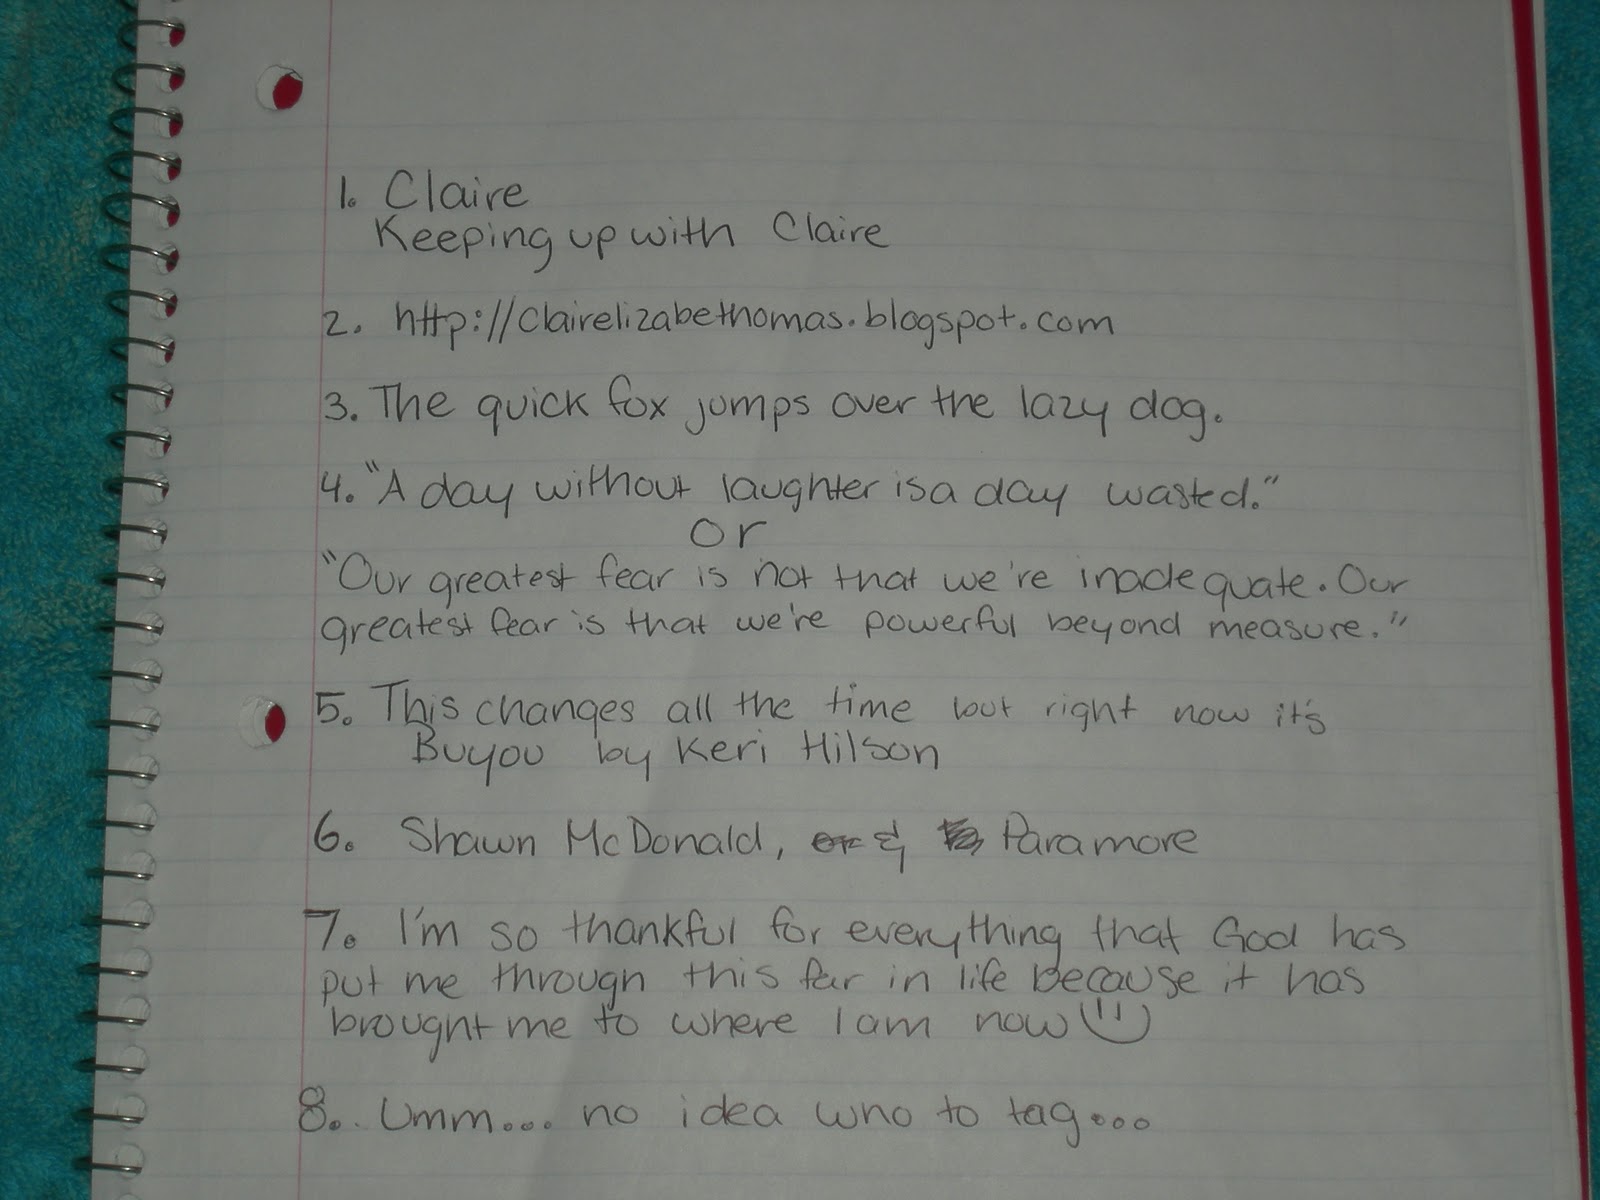 1. Claire
Keeping up with Claire
2. http://clairelizabethomas.blogspot.com
3. The quick fox jumps over the lazy dog.
4. "A day without laughter is a day wasted."
or
"Our greatest fear is not that we're inadequate. Our
greatest fear is that we're powerful beyond measure."
5. This changes all the time but right now it's
Buyou by Keri Hilson
6. Shawn McDonald, & Paramore
7. I'm so thankful for everything that God has
put me through this far in life because it has
brought me to where I am now
8. Umm... no idea who to tag...